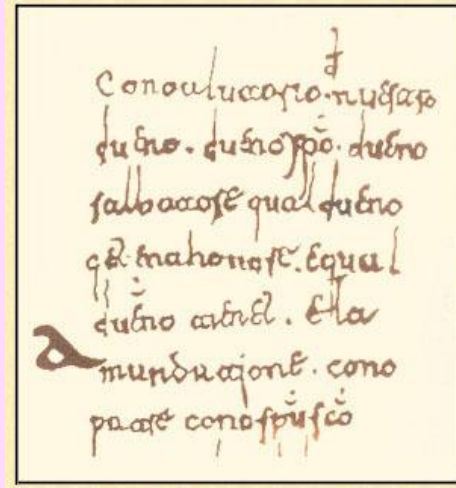 Conoajutorio de nuestro
dueno. dueno xpo. dueno
salbatore qual dueno
get ena honore. equal
dueno tienet. ela
mandatjone. cono
patre cono spu sco